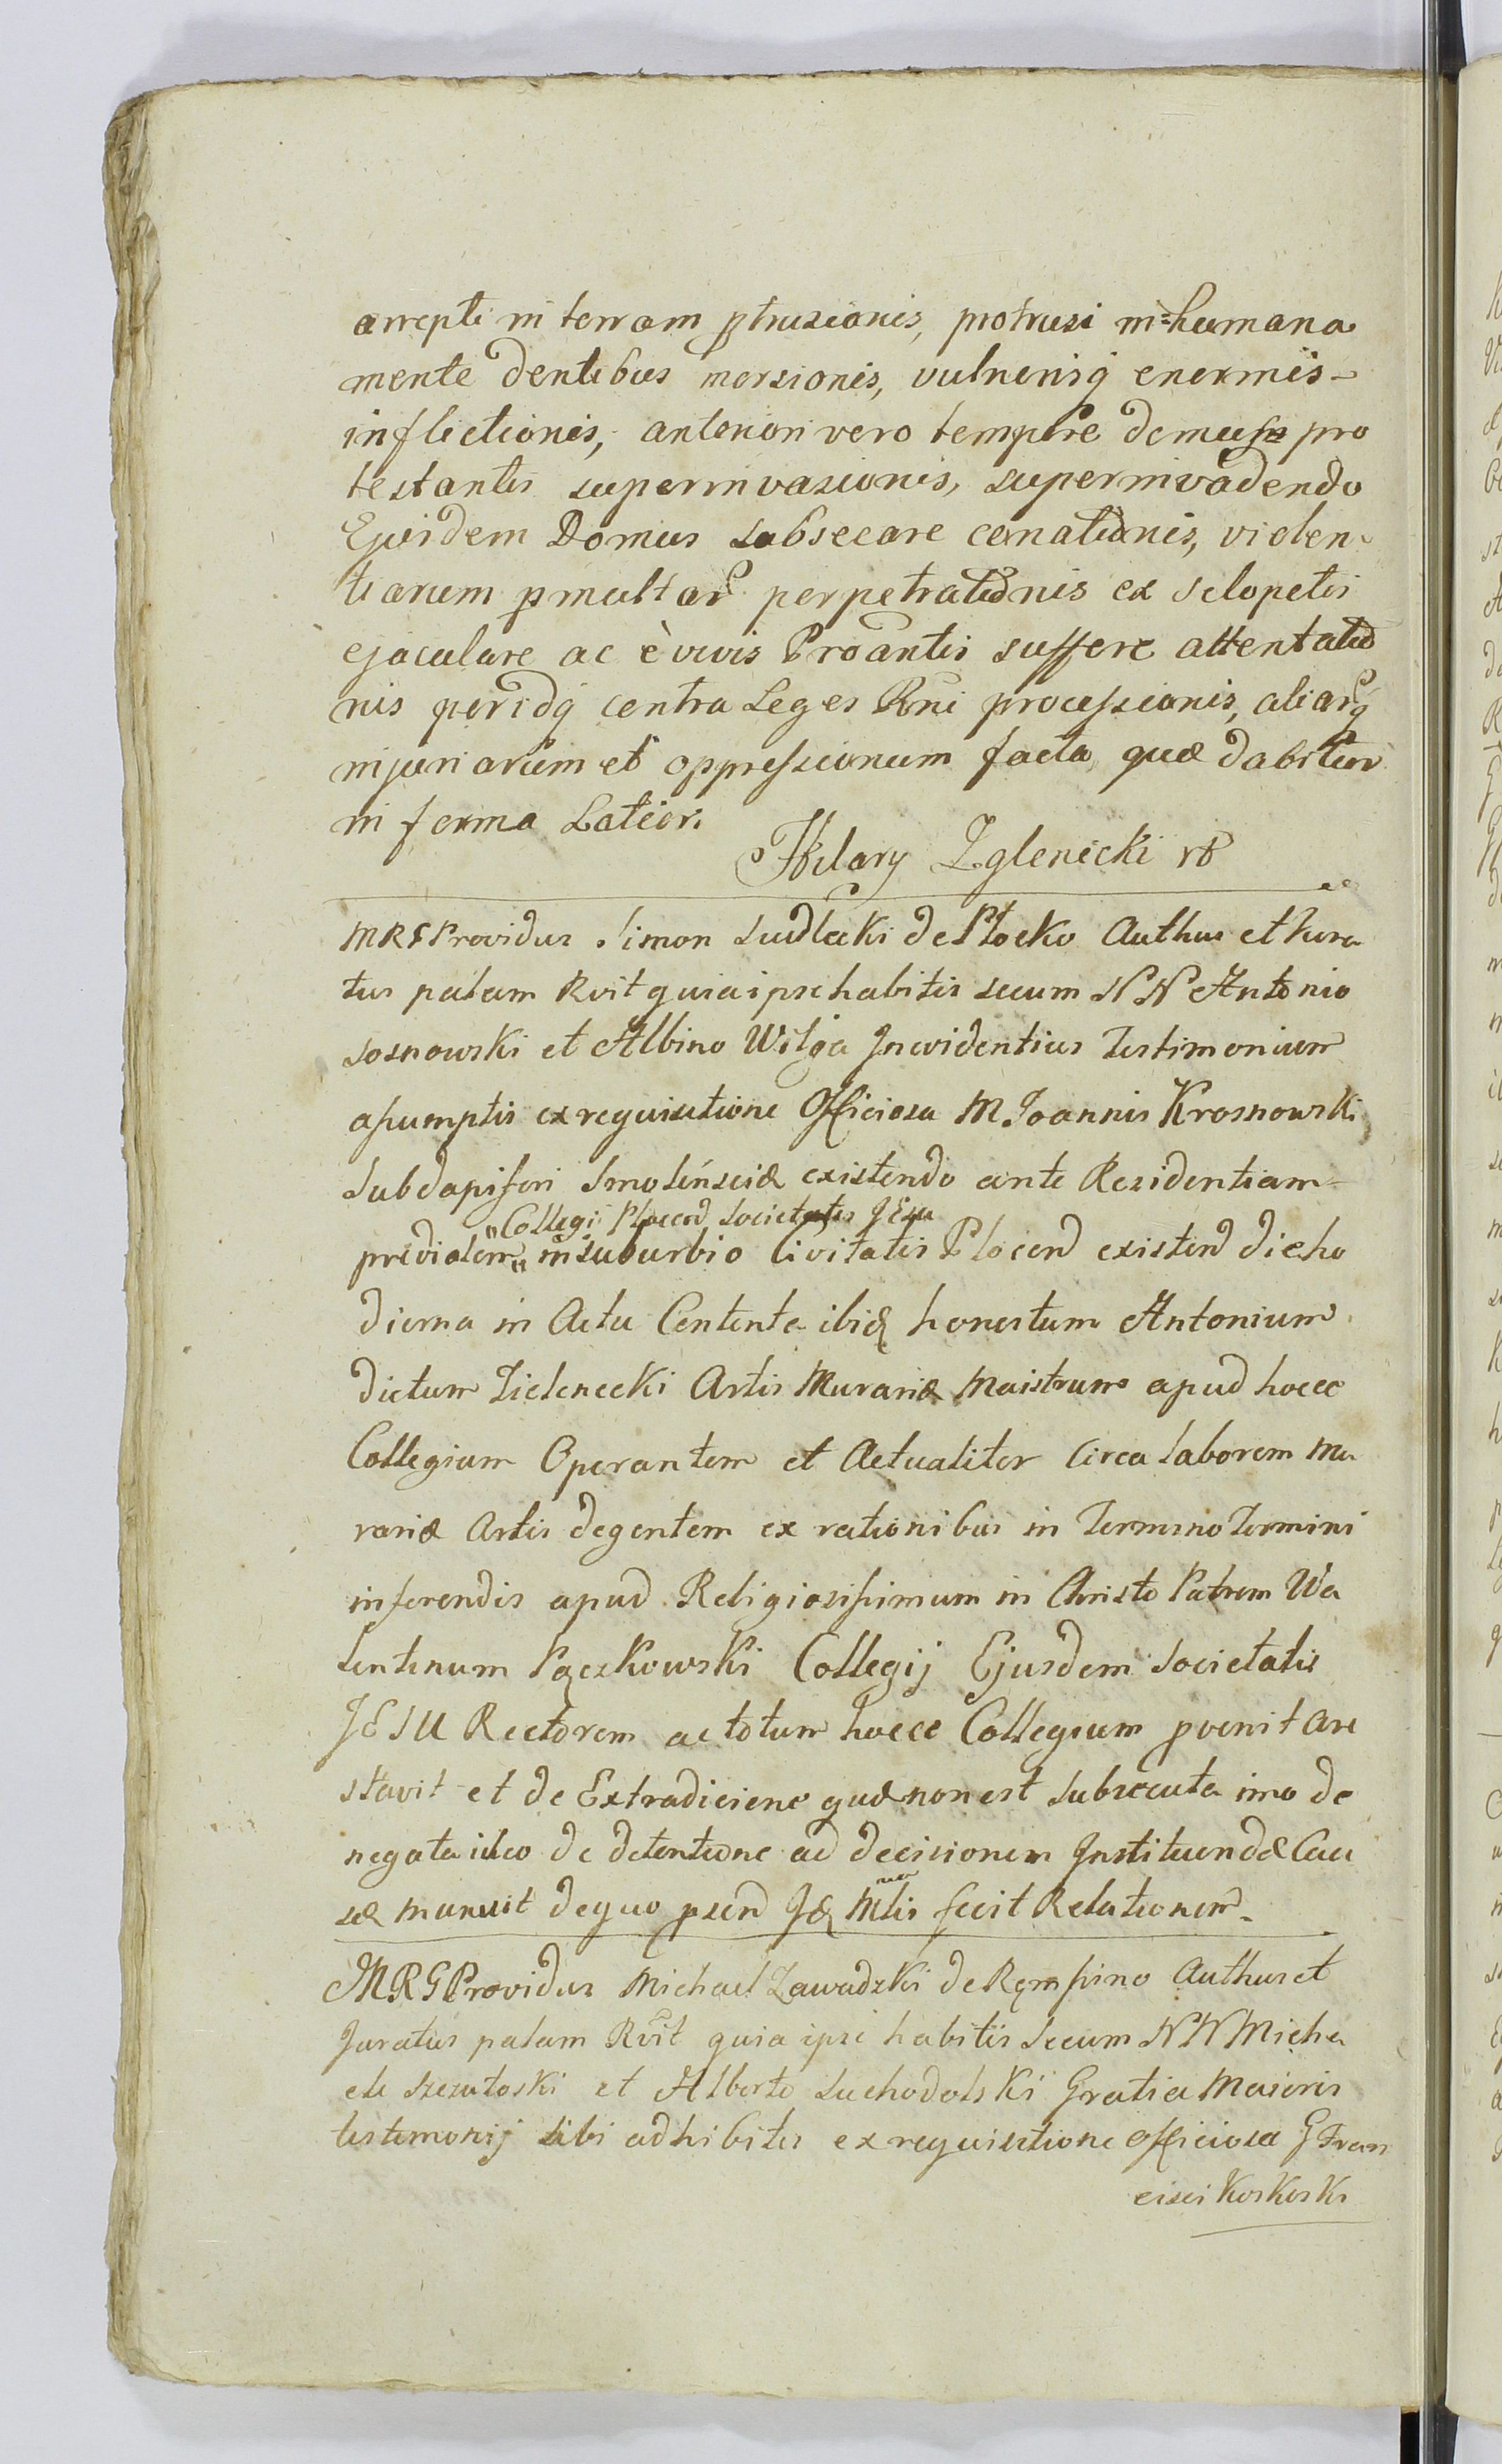 arrepti in terram ptrusionis, protrusi in=humana
mente dentibus morsionis, vulnerisq enormis-
inflictionis, anteriori vero tempore domus pro
testantis superinvasionis, superinvadendo
Ejusdem Domus subsecare conationis, violen-
tiarum pmultar perpetrationis ex sclopetis
ejaculare ac è vivis Proantis sufferre attentatio
nis peridq contra Leges Rni processionis, aliarq
injuriarum et oppressionum facta, quæ dabitur
in forma Latiori
Hilary Zglenicki
MRG Providus Simon Siudlecki de Plocko Authus et Jura
tus palam Rvit quia ipse habitis secum NN Antonio
Sosnowski et Albino Wilga In evidentius Testimonium
assumptis ex requisitione Officiosa M. Joannis Krosnowski
Subdapiferi Smolensciæ existendo ante Residentiam
"Collegi Plocen Societatis JEsu
predialem" in suburbio Civitatis Plocen existen die ho
dierna in Actu Contente ibiq honestum Antonium
dictum Zielenecki Artis Murariæ Maistrum apud hocce
Collegium Operantem et Actualiter Circa laborem Mu
rariæ Artis degentem ex rationibus in Termino Termini
inferendis apud Religiosissimum in Christo Patrem Wa
lentinum Pączkowski Collegij Ejusdem Societatis
JESU Rectorem ac totum hocce Collegium pvenit Are
stavit et de Extradicione quæ non est subsecuta imo de
negata ideo de detentione ad decisionem Instituendæ Cau
sæ munuit de quo psen Jq Mlis fecit Relationem-
MRG Providus Michael Zawadzki de Rempino Authus et
Juratus palam Rvit quia ipse habitis secum NN Micha
ele Szczutoski et Alberto Suchodolski Gratia Maioris
testimonij sibi adhibitis ex requisitione officiosa G Fran
cisci Koskoski